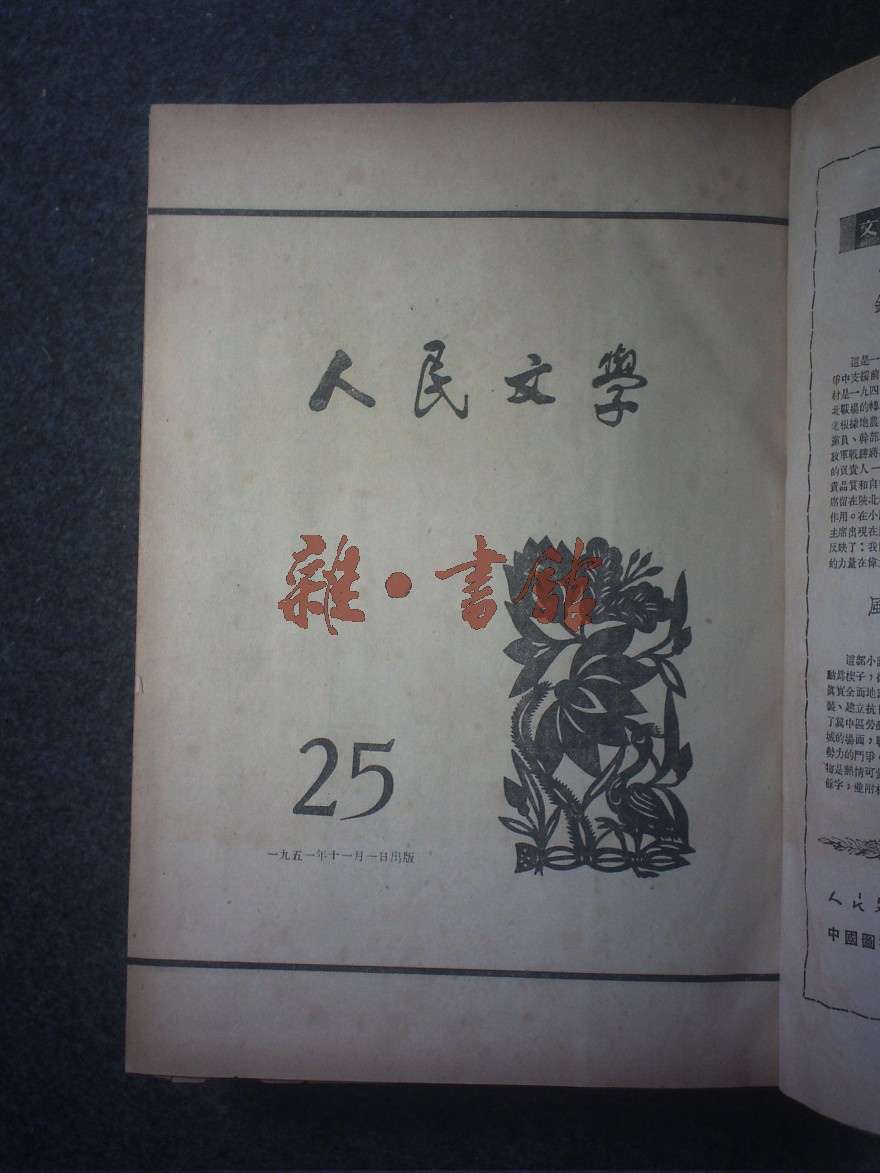 人民文學
雜·書館
25
一九五一年十一月一日出版
文
這是一
爭中支援前
材是一九四
北戰場的轉
老根據地農
黨員、幹部
敵軍戰勝蔣
的負責人一
貴品質和自
席留在陝北
作用。在小說
主席出現在
反映了：我
的力量在偉
風
這部小說
動爲楔子，
眞實全面地
裝、建立抗
了冀中區勞
城的場面，
勢力的鬥爭
物是熱情可
餘字，並附
人民
中國圖